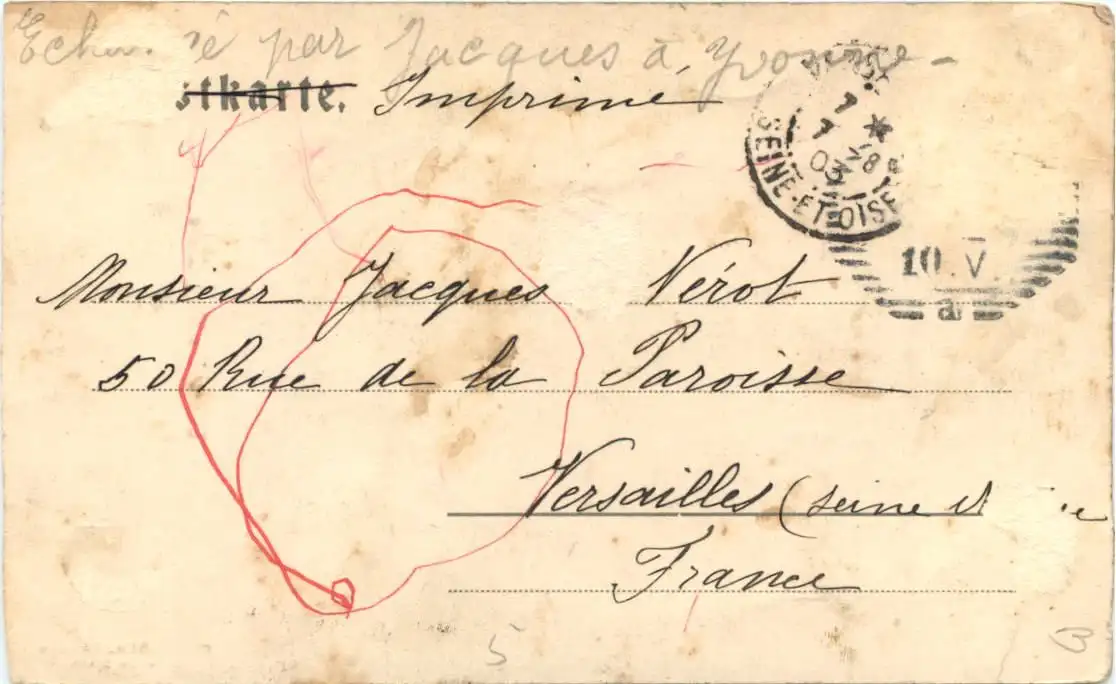 par Jacques à Yvonne -
stkarte. Imprimé
7 *
7 -18
03
SEINE-ET-OISE
10 V
a
Monsieur Jacques Nérot
50 Rue de la Paroisse
Versailles (seine
France
5
B